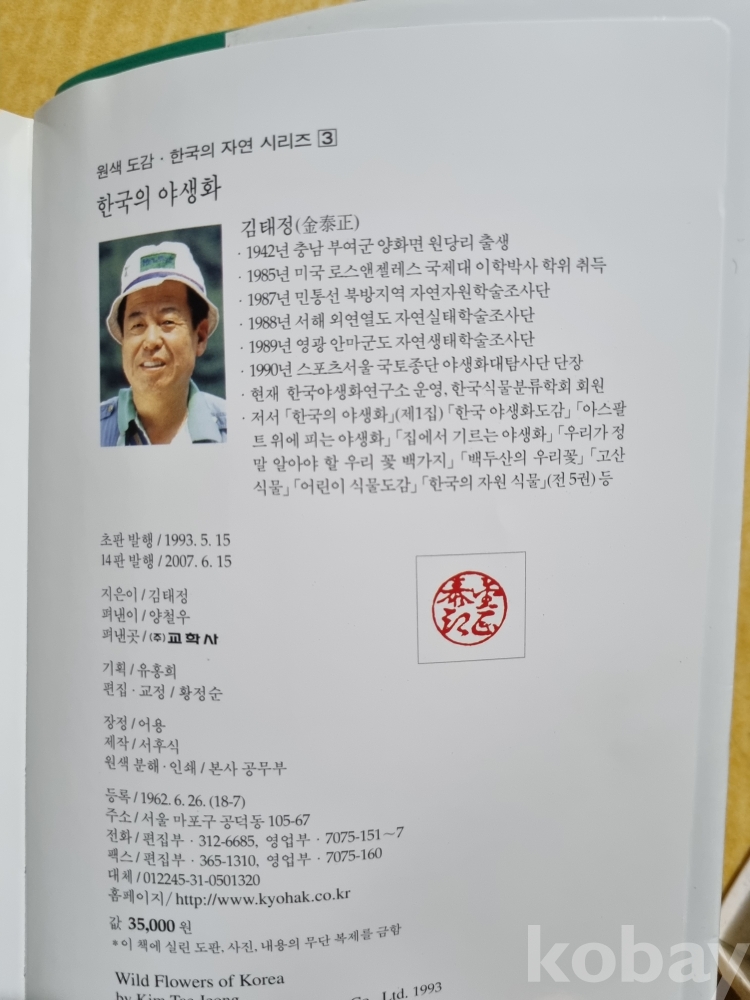 원색 도감 · 한국의 자연 시리즈 3
한국의 야생화
김태정(金泰正)
· 1942년 충남 부여군 양화면 원당리 출생
· 1985년 미국 로스앤젤레스 국제대 이학박사 학위 취득
· 1987년 민통선 북방지역 자연자원학술조사단
· 1988년 서해 외연열도 자연실태학술조사단
· 1989년 영광 안마군도 자연생태학술조사단
· 1990년 스포츠서울 국토종단 야생화대탐사단 단장
· 현재 한국야생화연구소 운영, 한국식물분류학회 회원
· 저서 「한국의 야생화」(제1집) 「한국 야생화도감」 「아스팔
트 위에 피는 야생화」 「집에서 기르는 야생화」 「우리가 정
말 알아야 할 우리 꽃 백가지」 「백두산의 우리꽃」 「고산
식물」 「어린이 식물도감」 「한국의 자원 식물」(전 5권) 등
초판 발행 / 1993. 5. 15
14판 발행 / 2007. 6. 15
지은이 / 김태정
펴낸이 / 양철우
펴낸곳 / (주) 교학사
기획 / 유홍희
편집 · 교정 / 황정순
장정 / 어용
제작 / 서후식
원색 분해 · 인쇄 / 본사 공무부
등록 / 1962. 6. 26. (18-7)
주소 / 서울 마포구 공덕동 105-67
전화 / 편집부 · 312-6685, 영업부 · 7075-151~7
팩스 / 편집부 · 365-1310, 영업부 · 7075-160
대체 / 012245-31-0501320
홈페이지 / http://www.kyohak.co.kr
값 35,000 원
* 이 책에 실린 도판, 사진, 내용의 무단 복제를 금함
Wild Flowers of Korea
by Kim Tae Jeong
Co., Ltd. 1993
kobay